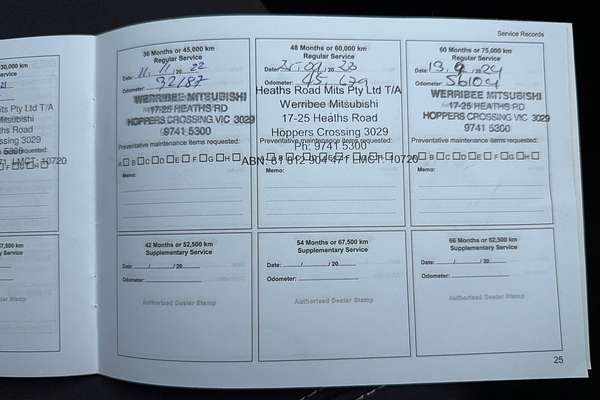 Service Records
30,000 km
ervice
Mits Pty Ltd T/A
Mitsubishi
Heaths Road
Crossing 3029
5300
LMCT: 10720
36 Months or 45,000 km
Regular Service
Date: 11 / 11 / 20 22
Odometer: 32187
WERRIBEE MITSUBISHI
17-25 HEATHS RD
HOPPERS CROSSING VIC 3029
9741 5300
Preventative maintenance items requested:
A B C D E F G H
Memo:
48 Months or 60,000 km
Regular Service
Date: / 09 / 20 23
Odometer: 45
Heaths Road Mits Pty Ltd T/A
Werribee Mitsubishi
17-25 Heaths Road
Hoppers Crossing 3029
Ph: 9741 5300
Preventative maintenance items requested:
LMCT: 10720
Memo:
60 Months or 75,000 km
Regular Service
Date: 13. 9 / 20 24
Odometer: 56104
WERRIBEE MITSUBISHI
17-25 HEATHS RD
HOPPERS CROSSING VIC 3029
9741 5300
Preventative maintenance items requested:
B C D E F G H
Memo:
7,500 km
Service
ler Stamp
42 Months or 52,500 km
Supplementary Service
Date: / / 20
Odometer:
Authorised Dealer Stamp
54 Months or 67,500 km
Supplementary Service
Date: / / 20
Odometer:
Authorised Dealer Stamp
66 Months or 82,500 km
Supplementary Service
Date: / / 20
Odometer:
Authorised Dealer Stamp
25